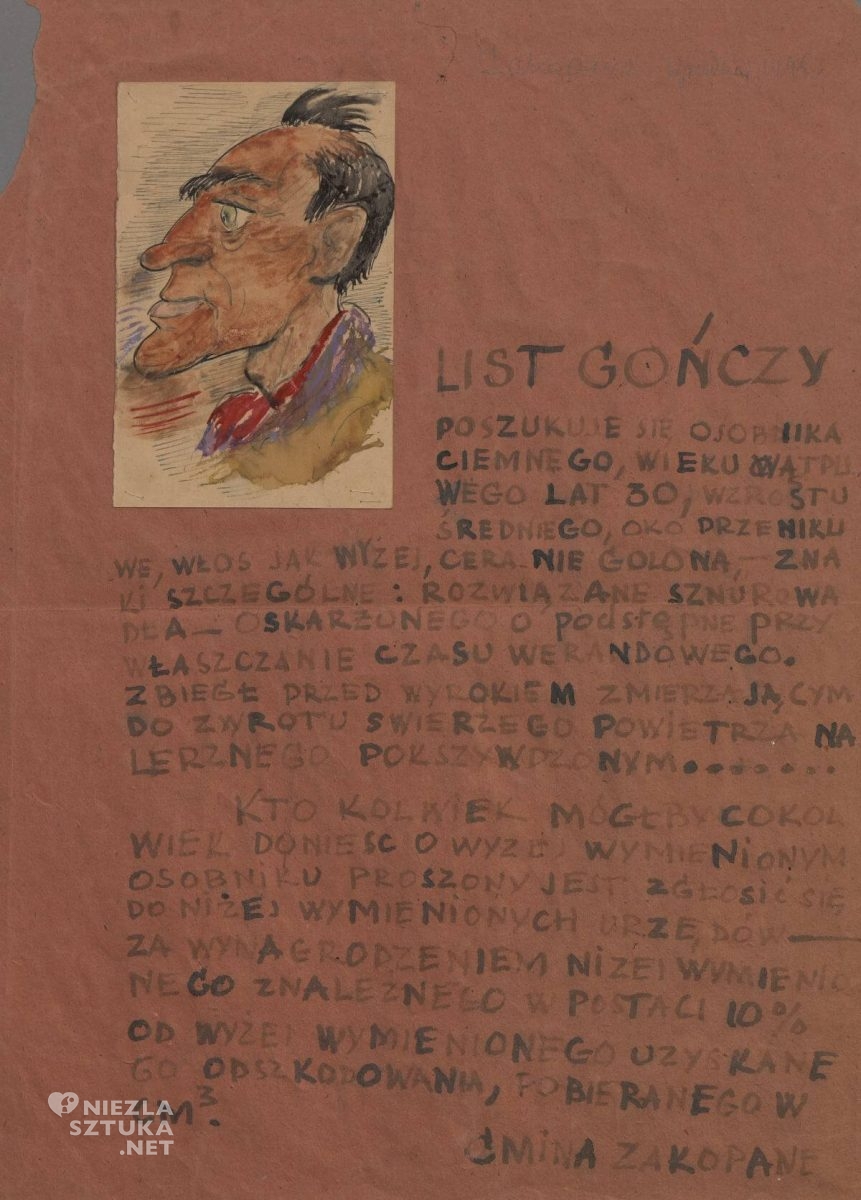 LIST GOŃCZY
POSZUKUJE SIĘ OSOBNIKA
CIEMNEGO, WIEKU WĄTPLI
WEGO LAT 30, WZROSTU
ŚREDNIEGO, OKO PRZENIKLI
WE, WŁOS JAK WYŻEJ, CERA NIE GOLONA, — ZNA
KI SZCZEGÓLNE: ROZWIĄZANE SZNUROWA
DŁA — OSKARŻONEGO O PODSTĘPNE PRZY
WŁASZCZANIE CZASU WERANDOWEGO.
ZBIEGŁ PRZED WYROKIEM ZMIERZAJĄCYM
DO ZWROTU SWIERZEGO POWIETRZA NA
LERZNEGO POKSZYWDZONYM........
KTO KOLWIEK MÓGŁBY COKOL
WIEK DONIESC O WYŻEJ WYMIENIONYM
OSOBNIKU PROSZONY JEST ZGŁOSIĆ SIĘ
DO NIŻEJ WYMIENIONYCH URZĘDÓW —
ZA WYNAGRODZENIEM NIŻEJ WYMIENIO
NEGO ZNALEZNEGO W POSTACI 10%
OD WYŻEJ WYMIENIONEGO UZYSKANE
GO ODSZKODOWANIA, POBIERANEGO W
M³.
GMINA ZAKOPANE
NIEZLA
SZTUKA
.NET